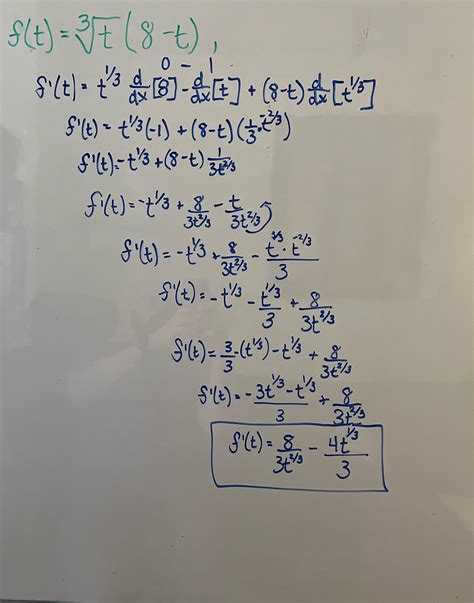 f(t) = ∛t (8-t),
0 - 1
f'(t) = t^1/3 d/dx [8] - d/dx [t] + (8-t) d/dx [t^1/3]
f'(t) = t^1/3 (-1) + (8-t) (1/3 · t^-2/3)
f'(t) = -t^1/3 + (8-t) 1/3t^2/3
f'(t) = -t^1/3 + 8/3t^2/3 - t/3t^2/3
f'(t) = -t^1/3 + 8/3t^2/3 - t^3/3 · t^-2/3 / 3
f'(t) = -t^1/3 - t^1/3 / 3 + 8/3t^2/3
f'(t) = 3/3 · -(t^1/3) - t^1/3 + 8/3t^2/3
f'(t) = -3t^1/3 - t^1/3 / 3 + 8/3t^2/3
f'(t) = 8/3t^2/3 - 4t^1/3 / 3